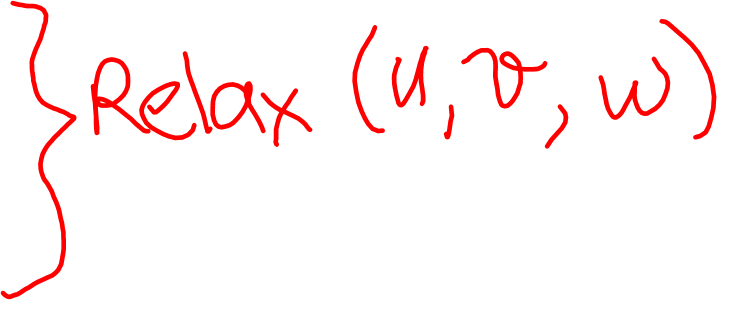 } Relax (u, v, w)